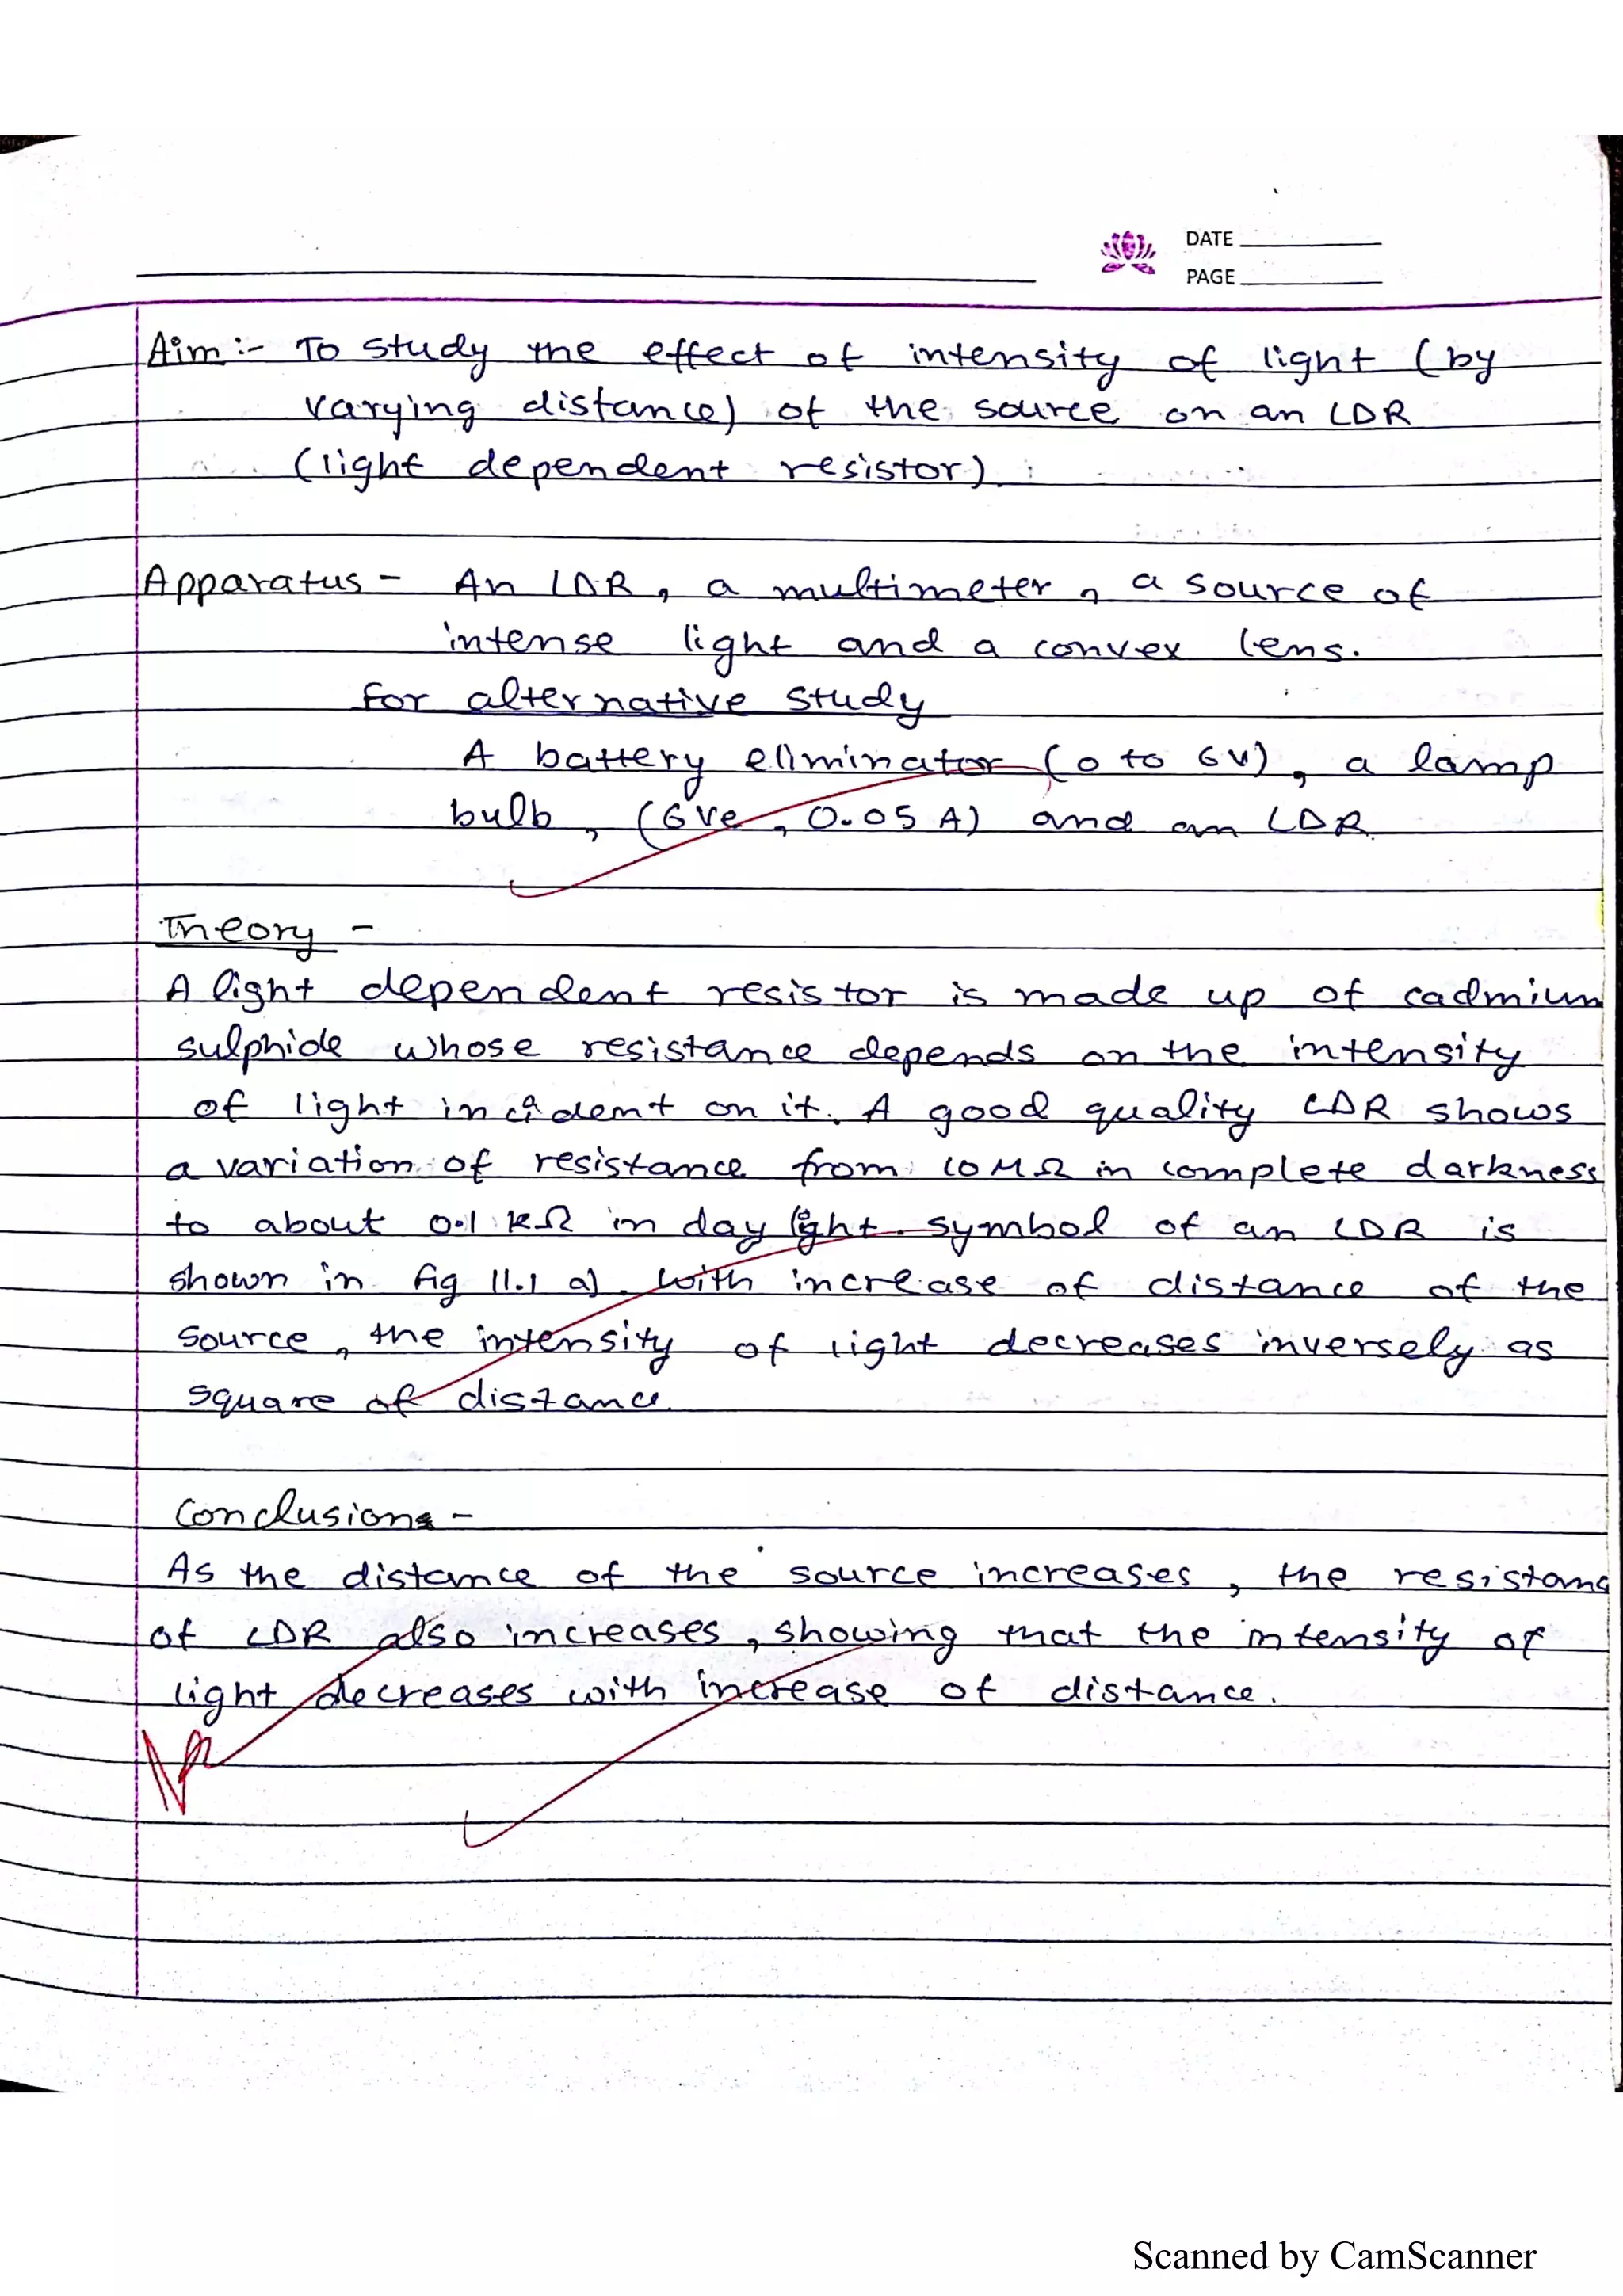 DATE
PAGE
Aim :- To study the effect of intensity of light (by
varying distance) of the source on an LDR
(light dependent resistor).
Apparatus - An LDR, a multimeter, a source of
intense light and a convex lens.
For alternative study
A battery eliminator (0 to 6V), a lamp
bulb, (6Ve, 0.05 A) and an LDR
Theory -
A light dependent resistor is made up of cadmium
sulphide whose resistance depends on the intensity
of light incident on it. A good quality LDR shows
a variation of resistance from 10 MΩ in complete darkness
to about 0.1 kΩ in day light. symbol of an LDR is
shown in fig 11.1 a). with increase of distance of the
source, the intensity of light decreases inversely as
square of distance.
Conclusion -
As the distance of the source increases, the resistanc
of LDR also increases, showing that the intensity of
light decreases with increase of distance.
Scanned by CamScanner